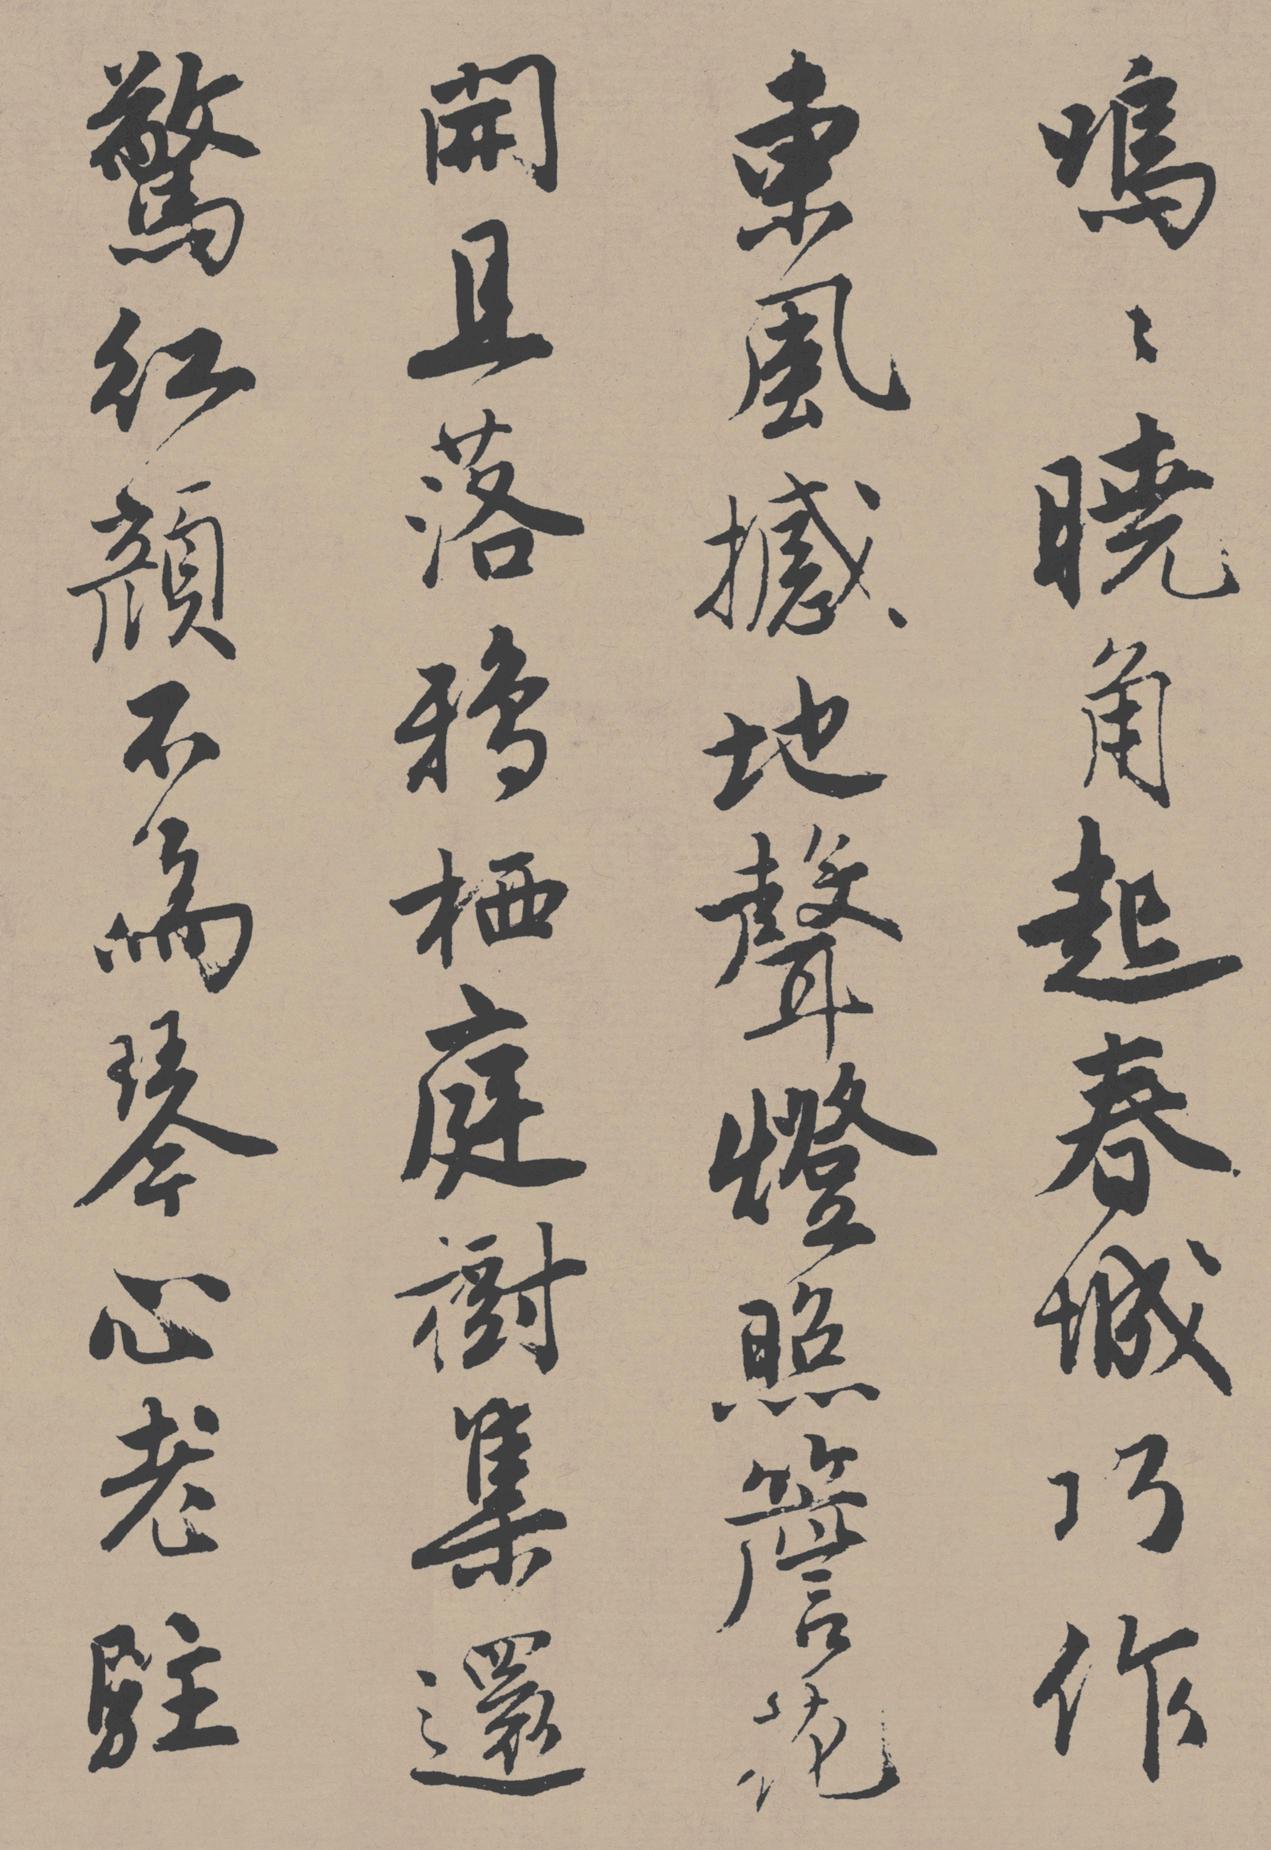 嗚〻曉角起春城巧作
東風撼地聲燈照簷花
開且落鴉栖庭樹集還
驚紅顏不爲琴心老駐